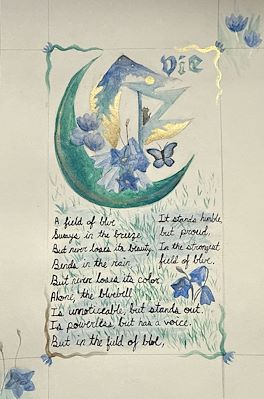 vie
A field of blue
Sways in the breeze,
But never loses its beauty,
Binds in the rain
But never loses its color
Alone, the bluebell
Is unnoticeable, but stands out.
Is powerless but has a voice.
But in the field of blue,
It stands humble,
but proud,
In the strongest
field of blue.